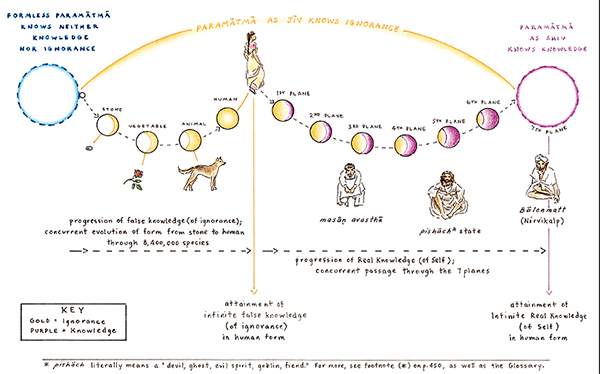 FORMLESS PARAMĀTMĀ
KNOWS NEITHER
KNOWLEDGE
NOR IGNORANCE
PARAMĀTMĀ AS JĪV KNOWS IGNORANCE
PARAMĀTMĀ
AS SHIV
KNOWS KNOWLEDGE
STONE
VEGETABLE
ANIMAL
HUMAN
1ST PLANE
2ND PLANE
3RD PLANE
4TH PLANE
5TH PLANE
6TH PLANE
7TH PLANE
masān avasthā
pishāch* state
Bālonmatt
(Nirvikalp)
progression of false knowledge (of ignorance);
concurrent evolution of form from stone to human
through 8,400,000 species
progression of Real Knowledge (of Self);
concurrent passage through the 7 planes
attainment of
infinite false knowledge
(of ignorance)
in human form
attainment of
Infinite Real Knowledge
(of Self)
in human form
KEY
GOLD = Ignorance
PURPLE = Knowledge
* pishāch literally means a "devil, ghost, evil spirit, goblin, fiend." For more, see footnote (*) on p. 450, as well as the Glossary.